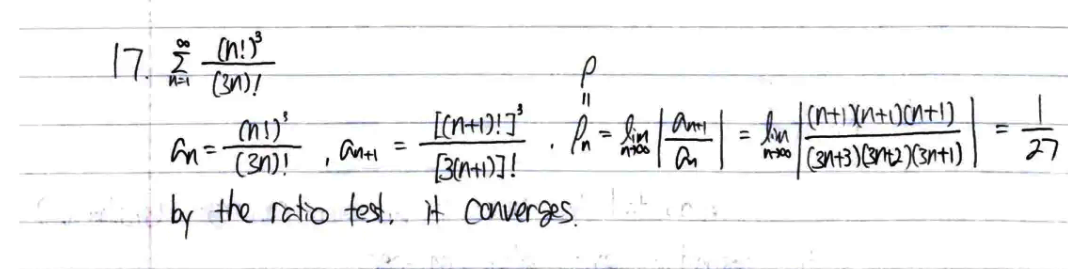 17. \sum_{n=1}^{\infty} \frac{(n!)^3}{(3n)!}
a_n = \frac{(n!)^3}{(3n)!}, a_{n+1} = \frac{[(n+1)!]^3}{[3(n+1)]!}. \overset{\overset{\rho}{\shortparallel}}{\rho_n} = \lim_{n\to\infty} \left|\frac{a_{n+1}}{a_n}\right| = \lim_{n\to\infty} \left|\frac{(n+1)(n+1)(n+1)}{(3n+3)(3n+2)(3n+1)}\right| = \frac{1}{27}
by the ratio test. it converges.